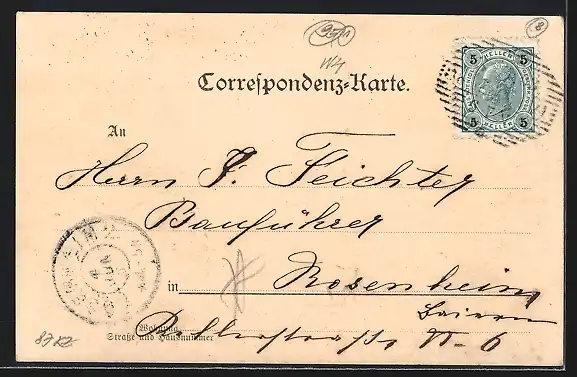 Correspondenz-Karte.
5 HELLER 5
5 HELLER 5
An
Herrn F. Feichter
Bauführer
in Rosenheim
Baiern
Wohnung
Straße und Hausnummer
N- 6
87 KZ